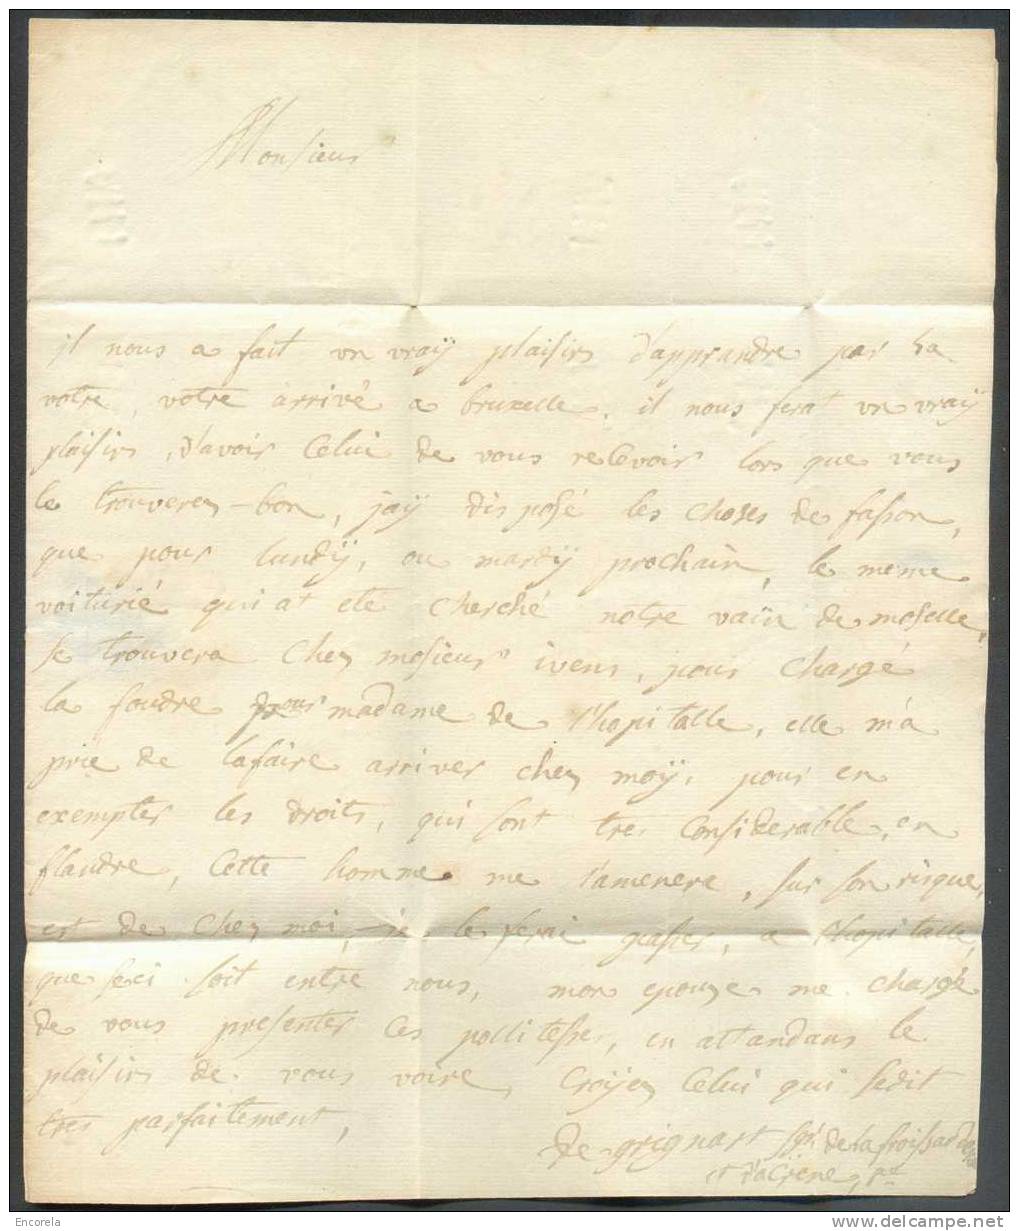 Monsieur
il nous a fait un vraÿ plaisirs d'apprandre par la
votre, votre arrivé a bruxelle, il nous ferat un vraÿ
plaisirs, d'avoir Celui de vous reCevoir lors que vous
le trouverez bon, jaÿ disposé les choses de fasson,
que pour lundÿ, ou mardÿ prochain, le meme
voiturié qui at eté cherché notre vain de moselle,
se trouvera chez mosieur ivens, pour chargé
la foudre pour madame de l'hopitalle, elle m'a
prie de lafaire arriver chez moÿ, pour en
exempter les droits, qui sont tres Considerable, en
flandre, Cette homme me l'amenera, sur son risque,
est de chez moi, je le ferai passer, a l'hopitalle,
que seci soit entre nous, mon epouze me chargé
de vous presenter Ces pollitesses, en attandans le
plaisirs de vous voire, Croÿez Celui qui sedit
tres parfaitement,
De grignart sgr. de la
et d'acrene,
Encorela
www.delcampe.net